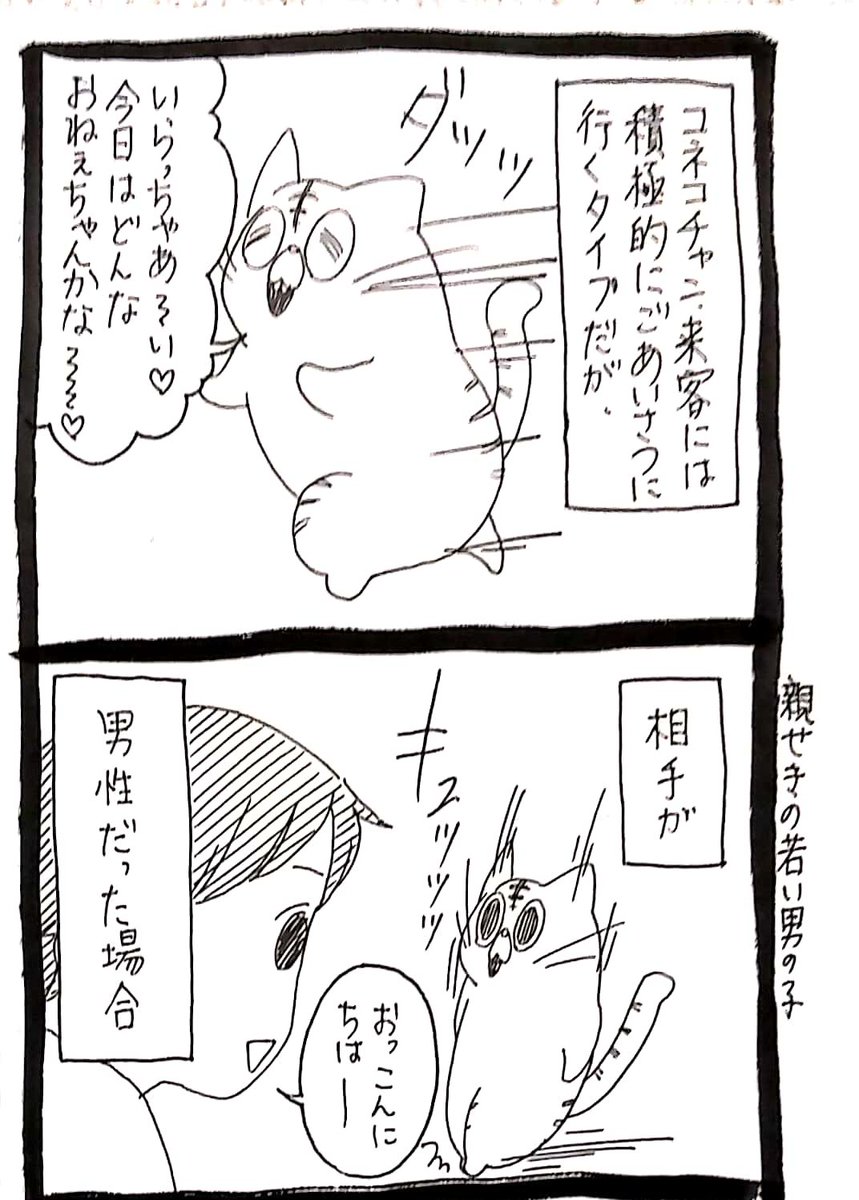 コネコチャン、来客には
積極的にごあいさつに
行くタイプだが、
ダッッッ
いらっちゃあ〜い♡
今日はどんな
おねぇちゃんかな〜〜♡
相手が
キュッッッッ
おっこんに
ちはー
男性だった場合
親せきの若い男の子